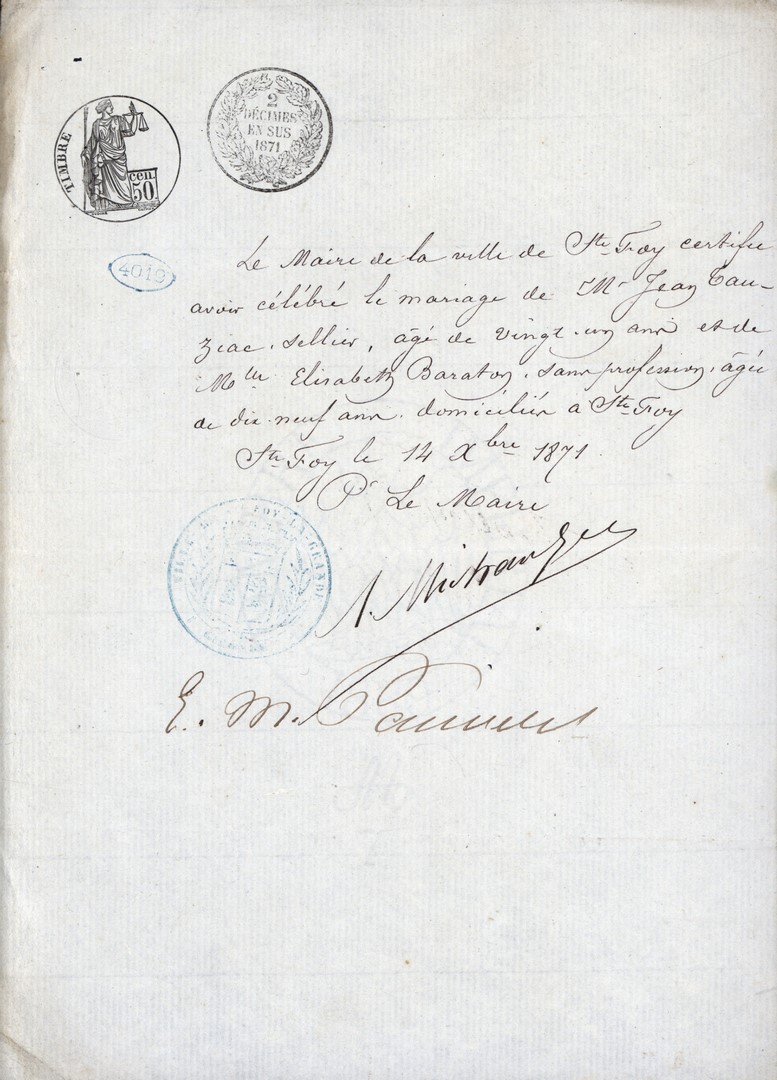 TIMBRE
cen.
50
2
DÉCIMES
EN SUS
1871
4019
Le Maire de la ville de Ste Foy certifie
avoir célébré le mariage de Mr Jean Tau-
ziac, sellier, âgé de vingt-un ans et de
Mlle Elisabeth Baraton, sans profession, âgée
de dix-neuf ans, domiciliés à Ste Foy
Ste Foy le 14 Xbre 1871
Pr Le Maire
VILLE DE STE FOY-LA-GRANDE
GIRONDE
E. M.